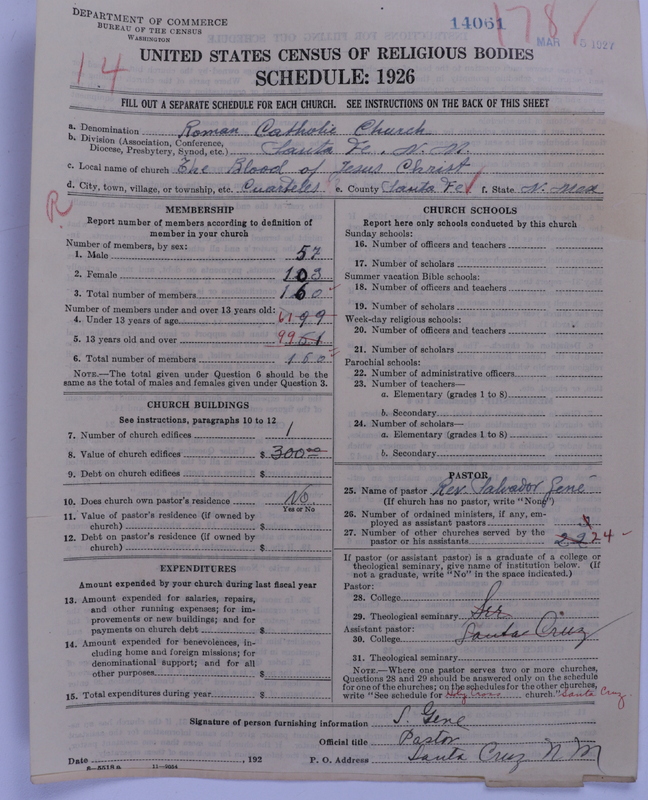 DEPARTMENT OF COMMERCE
BUREAU OF THE CENSUS
WASHINGTON
14061
178
MAR 5 1927
14
UNITED STATES CENSUS OF RELIGIOUS BODIES
SCHEDULE: 1926
FILL OUT A SEPARATE SCHEDULE FOR EACH CHURCH. SEE INSTRUCTIONS ON THE BACK OF THIS SHEET
a. Denomination Roman Catholic Church
b. Division (Association, Conference, Diocese, Presbytery, Synod, etc.) Santa Fe, N. M.
c. Local name of church The Blood of Jesus Christ
d. City, town, village, or township, etc. Cuarteles e. County Santa Fe f. State N. Mex
R
MEMBERSHIP
Report number of members according to definition of
member in your church
Number of members, by sex:
1. Male 57
2. Female 103
3. Total number of members 160
Number of members under and over 13 years old:
4. Under 13 years of age 61 99
5. 13 years old and over 99 61
6. Total number of members 160
NOTE.—The total given under Question 6 should be the
same as the total of males and females given under Question 3.
CHURCH BUILDINGS
See instructions, paragraphs 10 to 12
7. Number of church edifices 1
8. Value of church edifices $ 300.00
9. Debt on church edifices $
10. Does church own pastor's residence No
Yes or No
11. Value of pastor's residence (if owned by
church) $
12. Debt on pastor's residence (if owned by
church) $
EXPENDITURES
Amount expended by your church during last fiscal year
13. Amount expended for salaries, repairs,
and other running expenses; for im-
provements or new buildings; and for
payments on church debt $
14. Amount expended for benevolences, in-
cluding home and foreign missions; for
denominational support; and for all
other purposes $
15. Total expenditures during year $
CHURCH SCHOOLS
Report here only schools conducted by this church
Sunday schools:
16. Number of officers and teachers
17. Number of scholars
Summer vacation Bible schools:
18. Number of officers and teachers
19. Number of scholars
Week-day religious schools:
20. Number of officers and teachers
21. Number of scholars
Parochial schools:
22. Number of administrative officers
23. Number of teachers—
a. Elementary (grades 1 to 8)
b. Secondary
24. Number of scholars—
a. Elementary (grades 1 to 8)
b. Secondary
PASTOR
25. Name of pastor Rev. Salvador Gené
(If church has no pastor, write "None")
26. Number of ordained ministers, if any, em-
ployed as assistant pastors
27. Number of other churches served by the
pastor or his assistants 24
If pastor (or assistant pastor) is a graduate of a college or
theological seminary, give name of institution below. (If
not a graduate, write "No" in the space indicated.)
Pastor:
28. College
29. Theological seminary See
Assistant pastor:
30. College Santa Cruz
31. Theological seminary
NOTE.—Where one pastor serves two or more churches,
Questions 28 and 29 should be answered only on the schedule
for one of the churches; on the schedules for the other churches,
write "See schedule for Holy Cross church." Santa Cruz.
Signature of person furnishing information S. Gene
Official title Pastor
Date , 192 P. O. Address Santa Cruz N M
8-5518a 11-9664